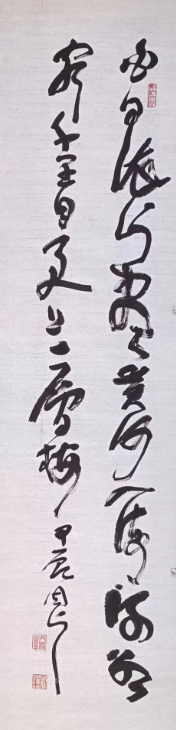 白日依山盡黄河入海流欲
窮千里目更上一層樓 甲辰